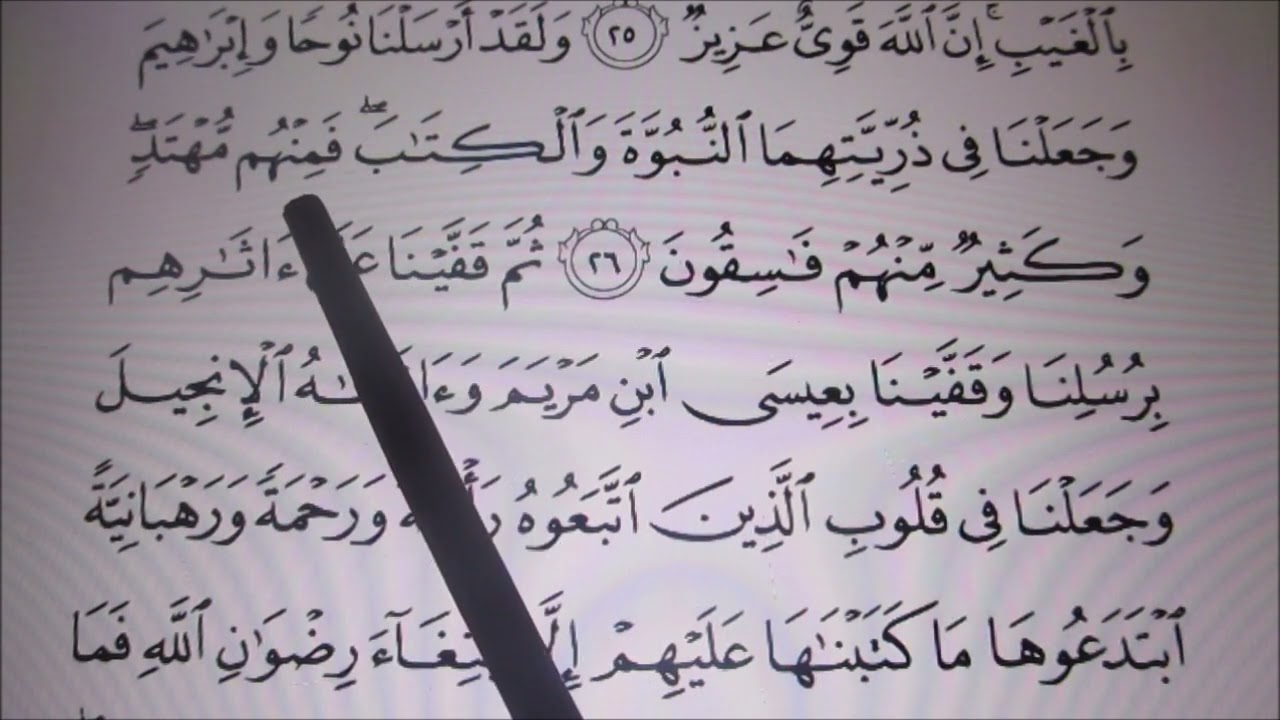 بِٱلْغَيْبِ ۚ إِنَّ ٱللَّهَ قَوِىٌّ عَزِيزٌ ٢٥ وَلَقَدْ أَرْسَلْنَا نُوحًا وَإِبْرَٰهِيمَ
وَجَعَلْنَا فِى ذُرِّيَّتِهِمَا ٱلنُّبُوَّةَ وَٱلْكِتَٰبَ ۖ فَمِنْهُم مُّهْتَدٍ ۖ
وَكَثِيرٌ مِّنْهُمْ فَٰسِقُونَ ٢٦ ثُمَّ قَفَّيْنَا ءَاثَٰرِهِم
بِرُسُلِنَا وَقَفَّيْنَا بِعِيسَى ٱبْنِ مَرْيَمَ ٱلْإِنجِيلَ
وَجَعَلْنَا فِى قُلُوبِ ٱلَّذِينَ ٱتَّبَعُوهُ وَرَحْمَةً وَرَهْبَانِيَّةً
ٱبْتَدَعُوهَا مَا كَتَبْنَٰهَا عَلَيْهِمْ رِضْوَٰنِ ٱللَّهِ فَمَا